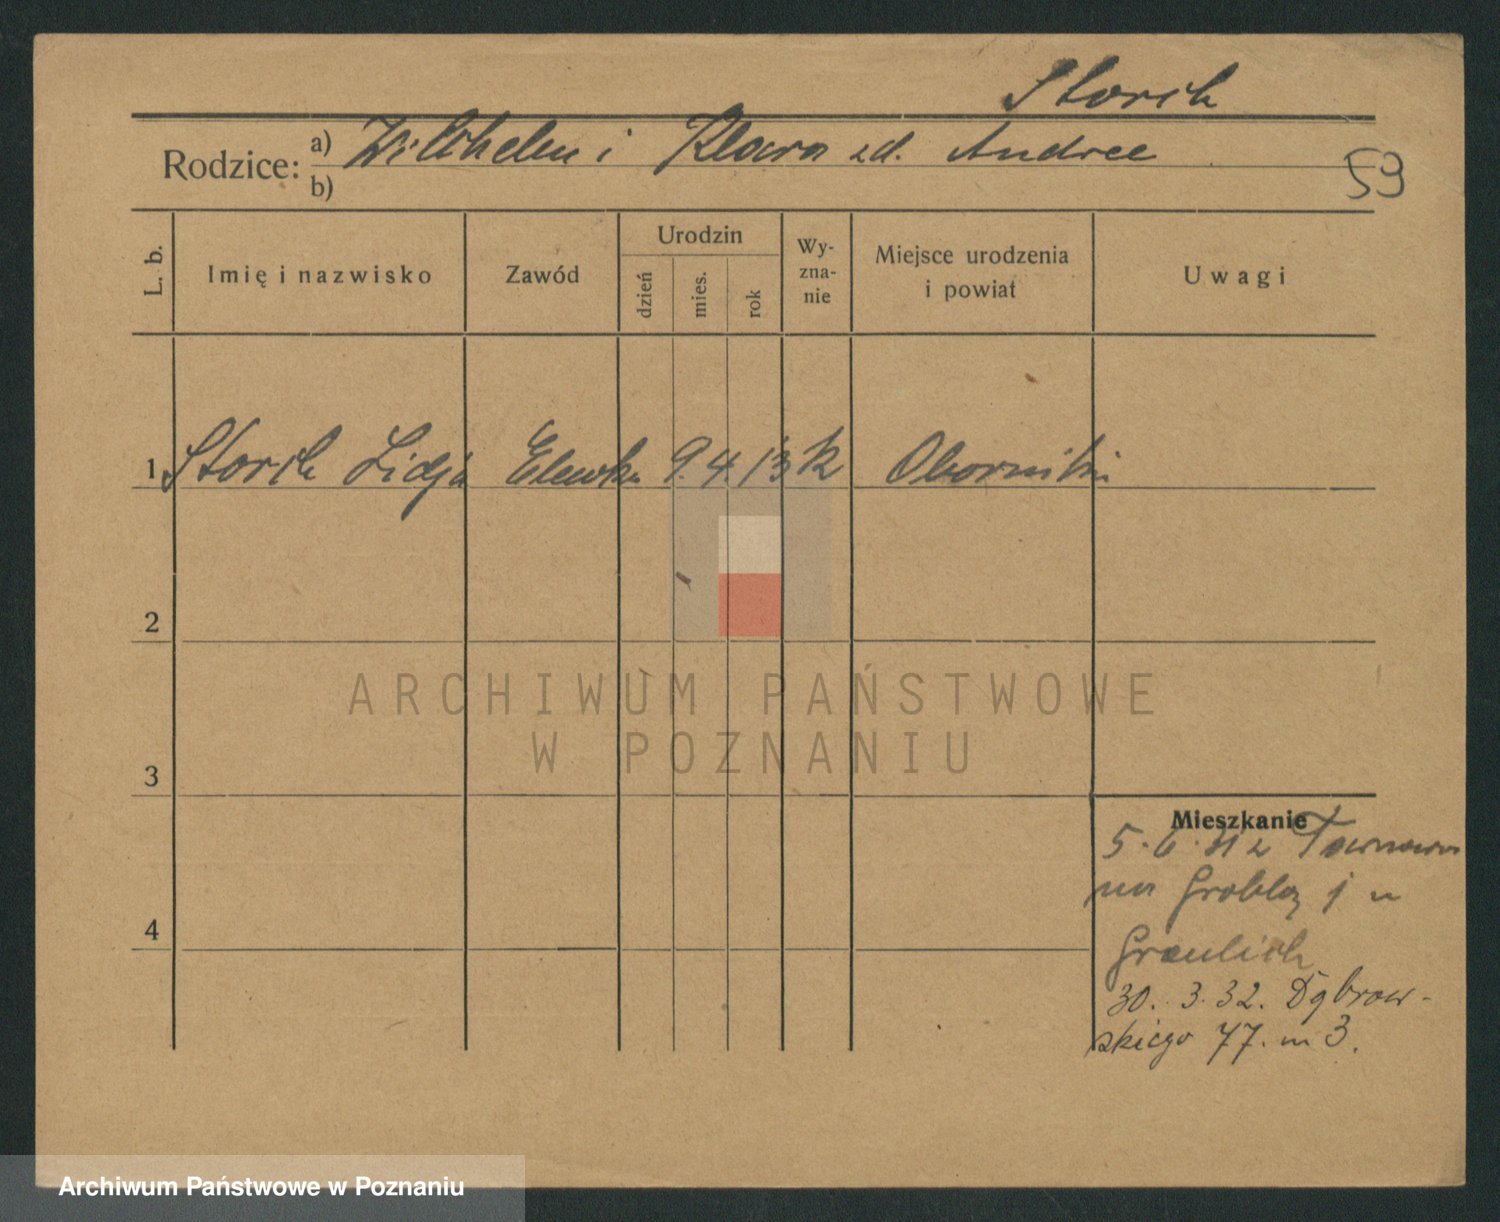 Storch
Rodzice: a) Wilhelm i Klara zd. Andree
b)
59
L. b.
Imię i nazwisko
Zawód
Urodzin
dzień
mies.
rok
Wy-
zna-
nie
Miejsce urodzenia
i powiat
Uwagi
1 Storch Lidja Elewka 9. 4. 13 k Oborniki
2
3
4
Mieszkanie
5. 6. 31 z
na Grobla 1 u
Graulich
30. 3. 32. Dąbrow-
skiego 77. m 3.
ARCHIWUM PAŃSTWOWE
W POZNANIU
Archiwum Państwowe w Poznaniu